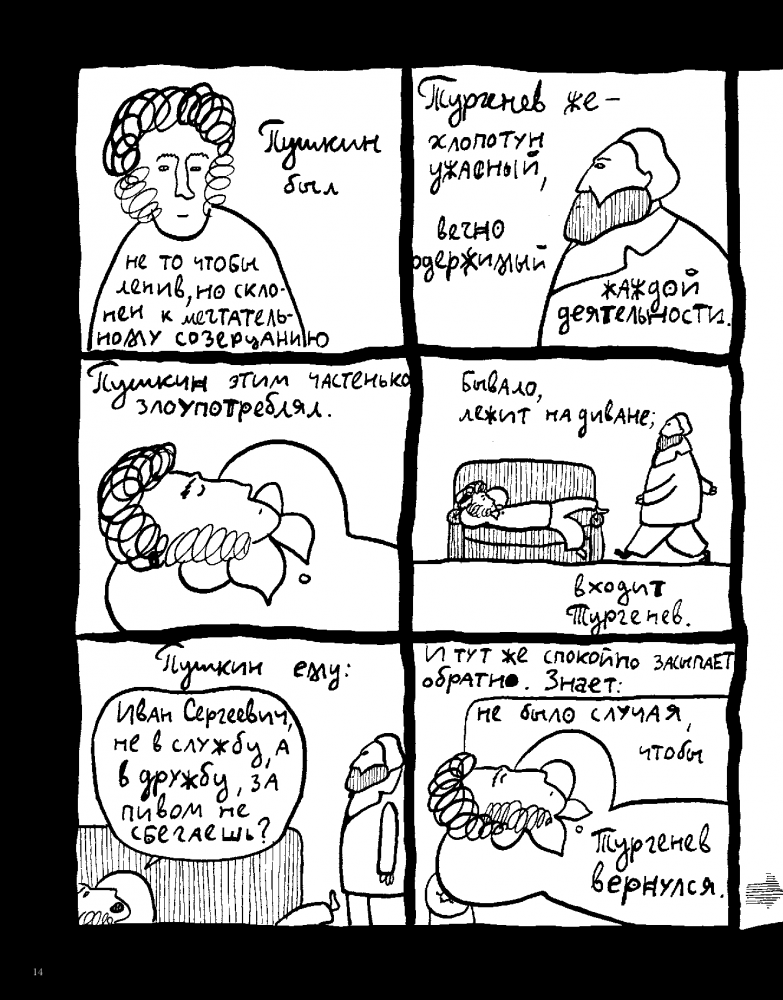 Пушкин
был
не то чтобы
ленив, но скло-
нен к мечтатель-
ному созерцанию
Тургенев же –
хлопотун
ужасный,
вечно
одержимый
жаждой
деятельности.
Пушкин этим частенько
злоупотреблял.
Бывало,
лежит на диване;
входит
Тургенев.
Пушкин ему:
Иван Сергеевич,
не в службу, а
в дружбу, за
пивом не
сбегаешь?
И тут же спокойно засыпает
обратно. Знает:
не было случая,
чтобы
Тургенев
вернулся.
14